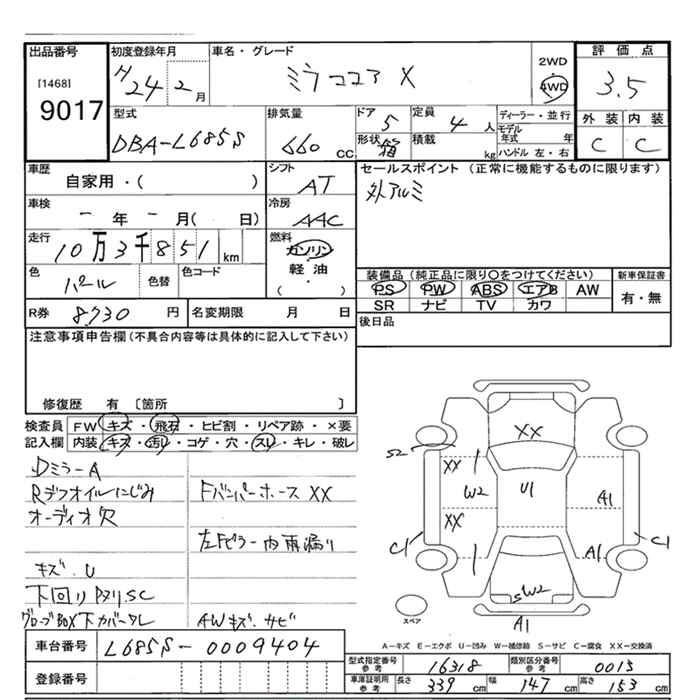 出品番号 初度登録年月 車名・グレード 2WD 評価点
[1468] H 24 2月 ミラココア X 4WD 3.5
9017 型式 排気量 ドア 定員 ディーラー・並行 外装 内装
DBA-L685S 660 CC 5 4人 モデル年式 年 C C
形状 箱 積載 kg ハンドル 左・右
車歴 シフト セールスポイント (正常に機能するものに限ります)
自家用・( ) AT 外アルミ
車検 冷房
ー年ー月( 日) AAC
走行 燃料
10万3千851km ガソリン
軽油
( ・ )
色 パール 色替 色コード
装備品(純正品に限り○をつけてください) 新車保証書
PS PW ABS エアB AW 有・無
SR ナビ TV カワ
R券 8730円 名変期限 月 日
後日品
注意事項申告欄(不具合内容等は具体的に記入して下さい)
修復歴 有 〔箇所 〕
検査員 FW キズ・飛石・ヒビ割・リペア跡・×要
記入欄 内装 キズ・汚レ・コゲ・穴・スレ・キレ・破レ
DミラーA
Rデフオイルにじみ FバンパーホースXX
オーディオ欠
左Fピラー内雨漏り
キズ.U
下回りPタリSC
グローブBOX下カバークレ AWキズ、サビ
XX
S2 XX W2 U1 A1
XX
C1 A1 C1
SW2
スペア A1
A-キズ E-エクボ U-凹み W-補修跡 S-サビ C-腐食 XX-交換済
車台番号 L685S-0009404
登録番号
型式指定番号参考 16318 類別区分番号参考 0013
車庫証明用参考 長さ 339cm 幅 147cm 高さ 153cm